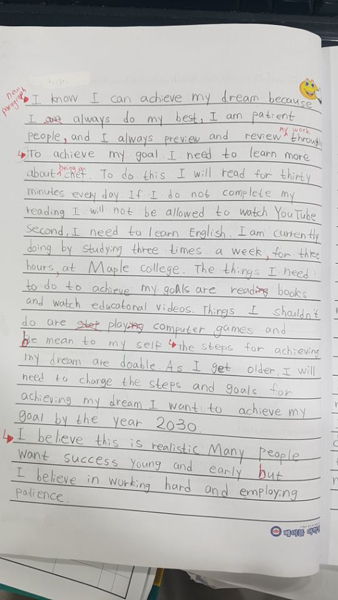 new paragraph
I know I can achieve my dream because
I are always do my best, I am patient
people, and I always preview and review my work through
To achieve my goal I need to learn more
about being a chef. To do this I will read for thirty
minutes every day If I do not complete my
reading I will not be allowed to watch YouTube
Second, I need to learn English. I am currently
doing by studying three times a week, for three
hours, at Maple college. The things I need
to do to achieve my goals are reading books
and watch educatonal videos. Things I shouldn't
do are playing computer games and
be mean to my self the steps for achieving
my dream are doable. As I get older, I will
need to change the steps and goals for
achieving my dream I want to achieve my
goal by the year 2030
I believe this is realistic Many people
want success young and early but
I believe in working hard and employing
patience